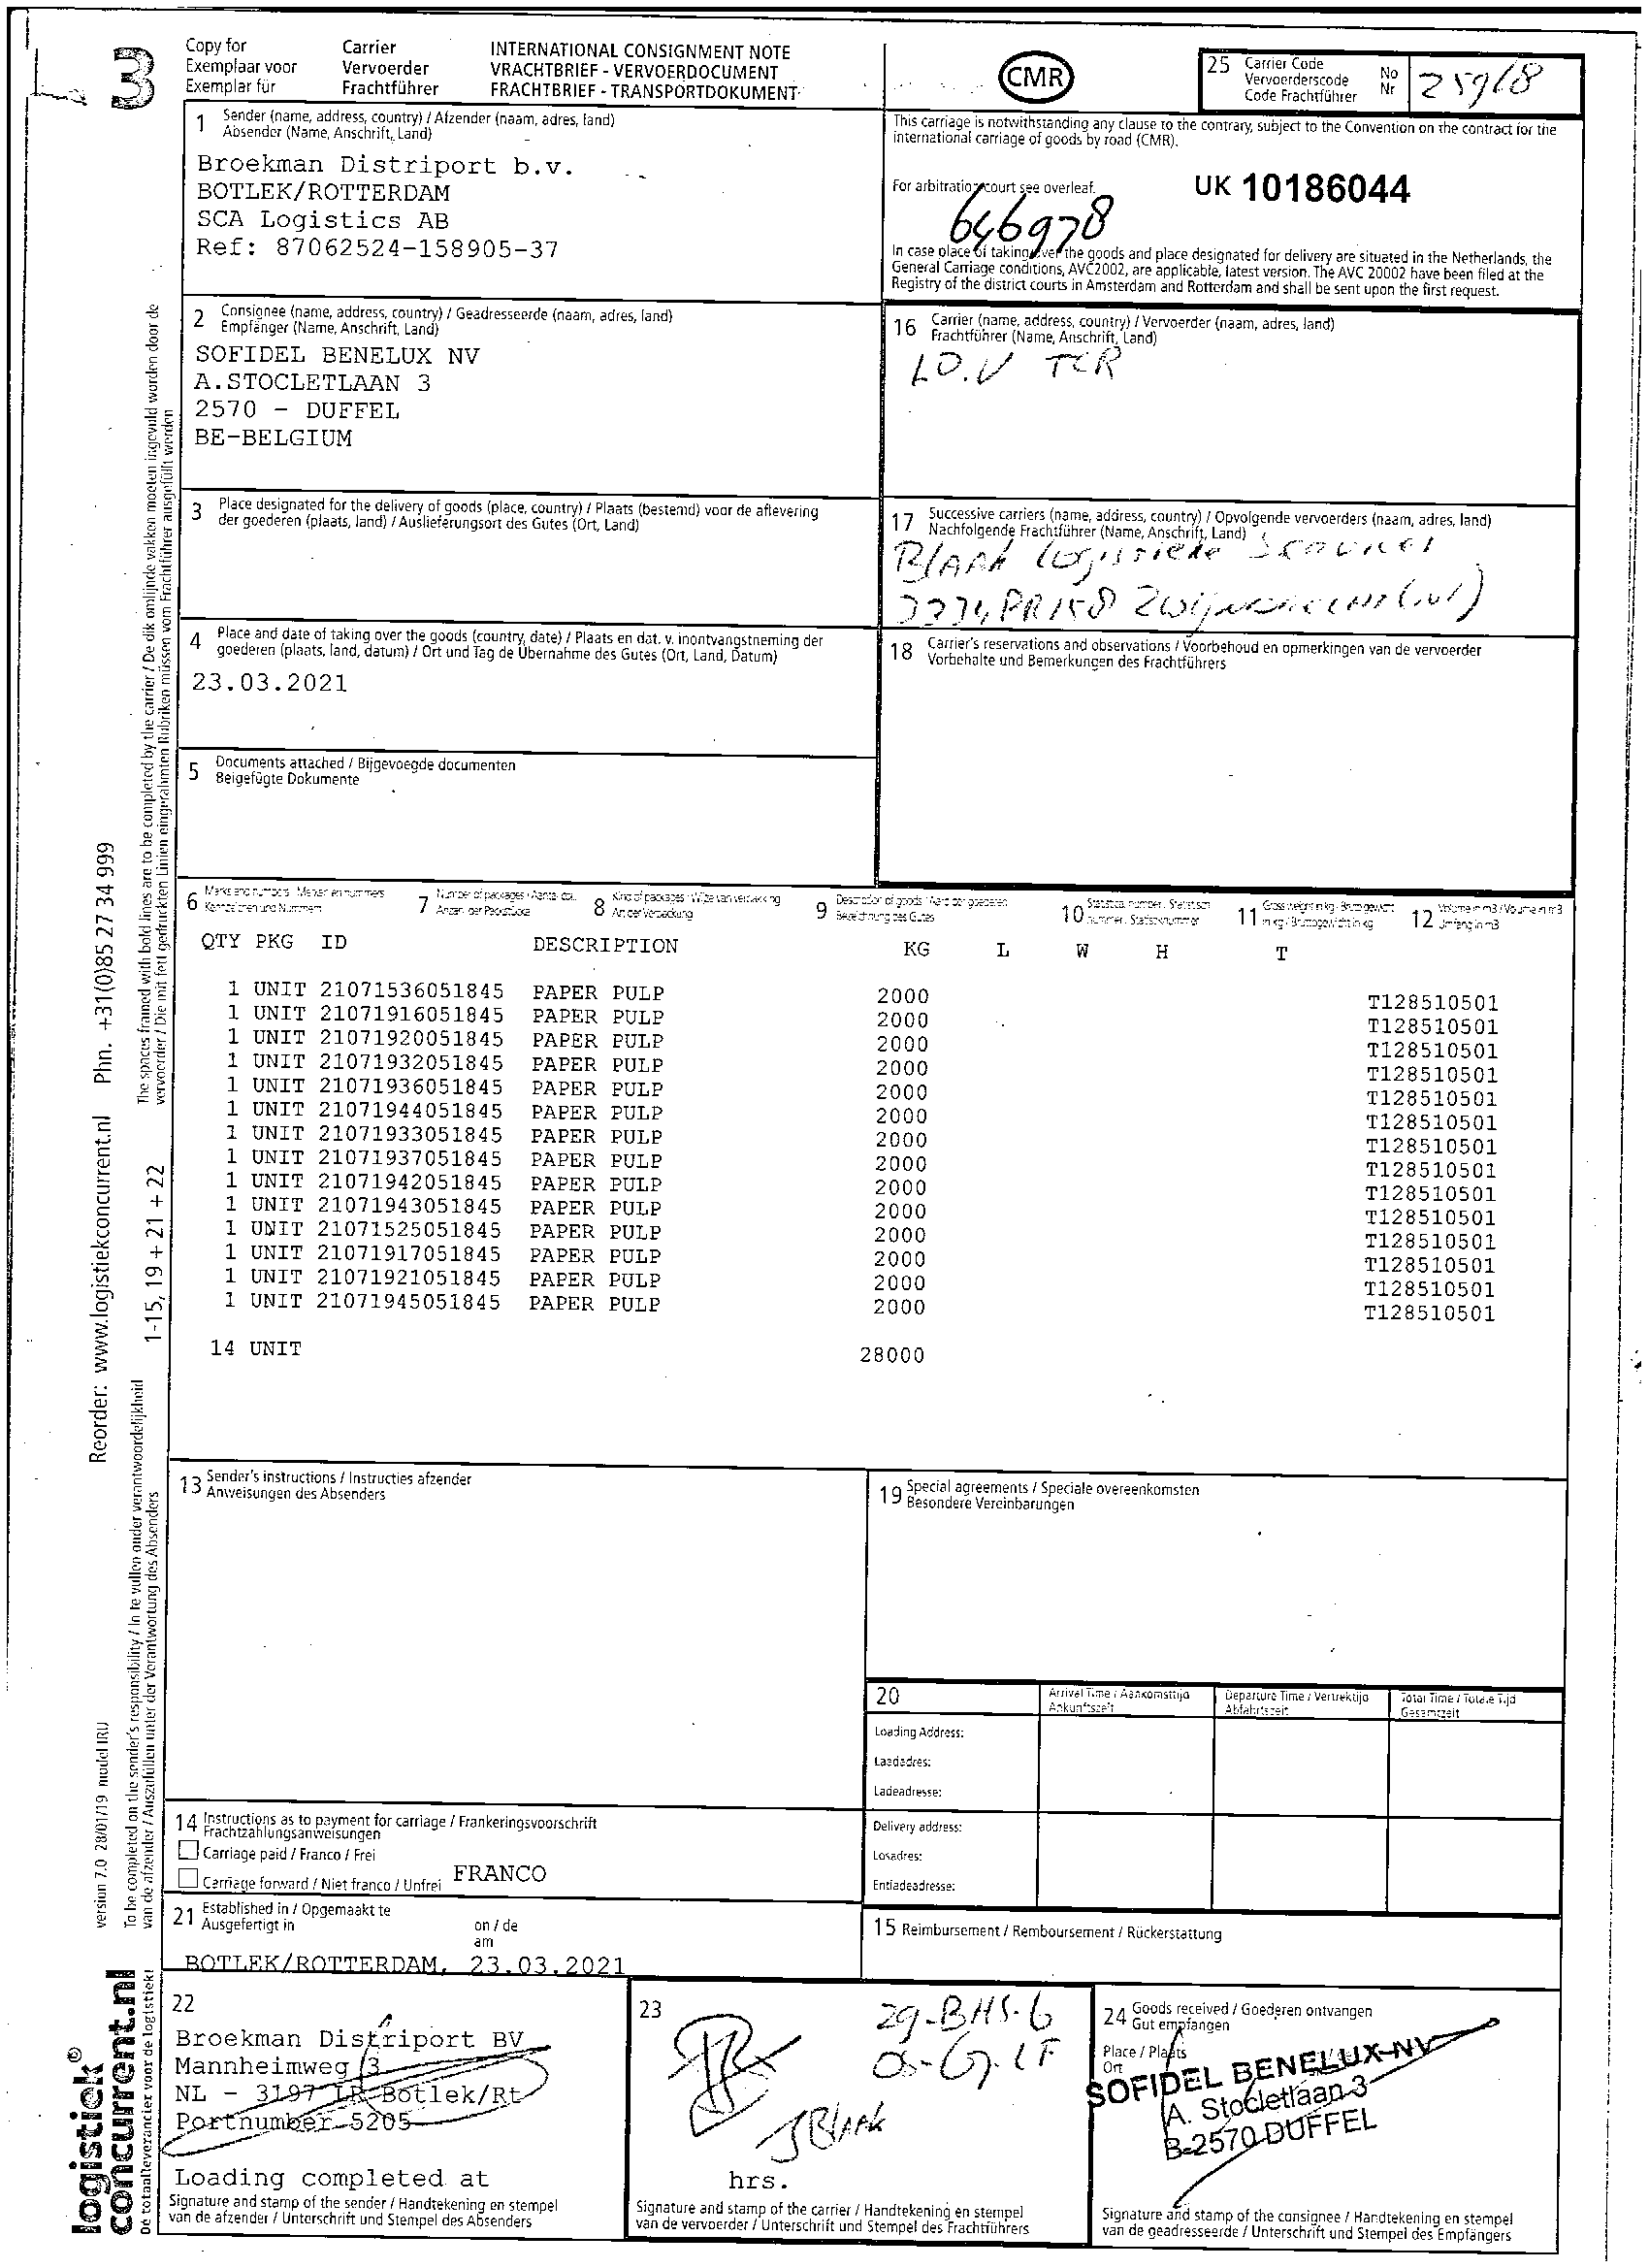 3
Copy for
Exemplaar voor
Exemplar für
Carrier
Vervoerder
Frachtführer
INTERNATIONAL CONSIGNMENT NOTE
VRACHTBRIEF - VERVOERDOCUMENT
FRACHTBRIEF - TRANSPORTDOKUMENT
CMR
25 Carrier Code
Vervoerderscode
Code Frachtführer
No
Nr
25918
1 Sender (name, address, country) / Afzender (naam, adres, land)
Absender (Name, Anschrift, Land)
Broekman Distriport b.v.
BOTLEK/ROTTERDAM
SCA Logistics AB
Ref: 87062524-158905-37
This carriage is notwithstanding any clause to the contrary, subject to the Convention on the contract for the
international carriage of goods by road (CMR).
For arbitration court see overleaf.
UK 10186044
646978
In case place of taking over the goods and place designated for delivery are situated in the Netherlands, the
General Carriage conditions, AVC2002, are applicable, latest version. The AVC 20002 have been filed at the
Registry of the district courts in Amsterdam and Rotterdam and shall be sent upon the first request.
2 Consignee (name, address, country) / Geadresseerde (naam, adres, land)
Empfänger (Name, Anschrift, Land)
SOFIDEL BENELUX NV
A.STOCLETLAAN 3
2570 - DUFFEL
BE-BELGIUM
16 Carrier (name, address, country) / Vervoerder (naam, adres, land)
Frachtführer (Name, Anschrift, Land)
I.O.V TCR
3 Place designated for the delivery of goods (place, country) / Plaats (bestemd) voor de aflevering
der goederen (plaats, land) / Auslieferungsort des Gutes (Ort, Land)
17 Successive carriers (name, address, country) / Opvolgende vervoerders (naam, adres, land)
Nachfolgende Frachtführer (Name, Anschrift, Land)
BLAAK Logistieke Services
4 Place and date of taking over the goods (country, date) / Plaats en dat. v. inontvangstneming der
goederen (plaats, land, datum) / Ort und Tag de Übernahme des Gutes (Ort, Land, Datum)
23.03.2021
18 Carrier's reservations and observations / Voorbehoud en opmerkingen van de vervoerder
Vorbehalte und Bemerkungen des Frachtführers
5 Documents attached / Bijgevoegde documenten
Beigefügte Dokumente
6 Marks and numbers / Merken en nummers
Kennzeichen und Nummern
7 Number of packages / Aantal
Anzahl der Packstücke
8 Kind of packages / Wijze van verpakking
Art der Verpackung
9 Description of goods / Aard der goederen
Bezeichnung des Gutes
10 Statistical number / Statistisch
nummer / Statistiknummer
11 Gross weight in kg / Brutogewicht
in kg / Bruttogewicht in kg
12 Volume in m3 / Volume in m3
Umfang in m3
QTY PKG ID DESCRIPTION KG L W H T
1 UNIT 21071536051845 PAPER PULP 2000 T128510501
1 UNIT 21071916051845 PAPER PULP 2000 T128510501
1 UNIT 21071920051845 PAPER PULP 2000 T128510501
1 UNIT 21071932051845 PAPER PULP 2000 T128510501
1 UNIT 21071936051845 PAPER PULP 2000 T128510501
1 UNIT 21071944051845 PAPER PULP 2000 T128510501
1 UNIT 21071933051845 PAPER PULP 2000 T128510501
1 UNIT 21071937051845 PAPER PULP 2000 T128510501
1 UNIT 21071942051845 PAPER PULP 2000 T128510501
1 UNIT 21071943051845 PAPER PULP 2000 T128510501
1 UNIT 21071525051845 PAPER PULP 2000 T128510501
1 UNIT 21071917051845 PAPER PULP 2000 T128510501
1 UNIT 21071921051845 PAPER PULP 2000 T128510501
1 UNIT 21071945051845 PAPER PULP 2000 T128510501
14 UNIT 28000
13 Sender's instructions / Instructies afzender
Anweisungen des Absenders
19 Special agreements / Speciale overeenkomsten
Besondere Vereinbarungen
20
Arrival Time / Aankomsttijd
Ankunftszeit
Departure Time / Vertrektijd
Abfahrtszeit
Total Time / Totale Tijd
Gesamtzeit
Loading Address:
Laadadres:
Ladeadresse:
Delivery address:
Losadres:
Entladeadresse:
14 Instructions as to payment for carriage / Frankeringsvoorschrift
Frachtzahlungsanweisungen
Carriage paid / Franco / Frei
Carriage forward / Niet franco / Unfrei
FRANCO
21 Established in / Opgemaakt te
Ausgefertigt in
on / de
am
BOTLEK/ROTTERDAM, 23.03.2021
15 Reimbursement / Remboursement / Rückerstattung
22
Broekman Distriport BV
Mannheimweg 3
NL - 3197 LR Botlek/Rt
Portnumber 5205
Loading completed at
Signature and stamp of the sender / Handtekening en stempel
van de afzender / Unterschrift und Stempel des Absenders
23
29-BHS-6
JBLAAK
hrs.
Signature and stamp of the carrier / Handtekening en stempel
van de vervoerder / Unterschrift und Stempel des Frachtführers
24 Goods received / Goederen ontvangen
Gut empfangen
Place / Plaats
Ort
SOFIDEL BENELUX NV
A. Stocletlaan 3
B-2570 DUFFEL
Signature and stamp of the consignee / Handtekening en stempel
van de geadresseerde / Unterschrift und Stempel des Empfängers
The spaces framed with bold lines are to be completed by the carrier / De dik omlijnde vakken moeten ingevuld worden door de
vervoerder / Die mit fett gedruckten Linien eingerahmten Rubriken müssen vom Frachtführer ausgefüllt werden
Reorder: www.logistiekconcurrent.nl Phn. +31(0)85 27 34 999
1-15, 19 + 21 + 22
To be completed on the sender's responsibility / In te vullen onder verantwoordelijkheid
van de afzender / Auszufüllen unter der Verantwortung des Absenders
version 7.0 28/01/19 model IRU
logistiek
concurrent.nl
Dé totaalleverancier voor de logistiek!